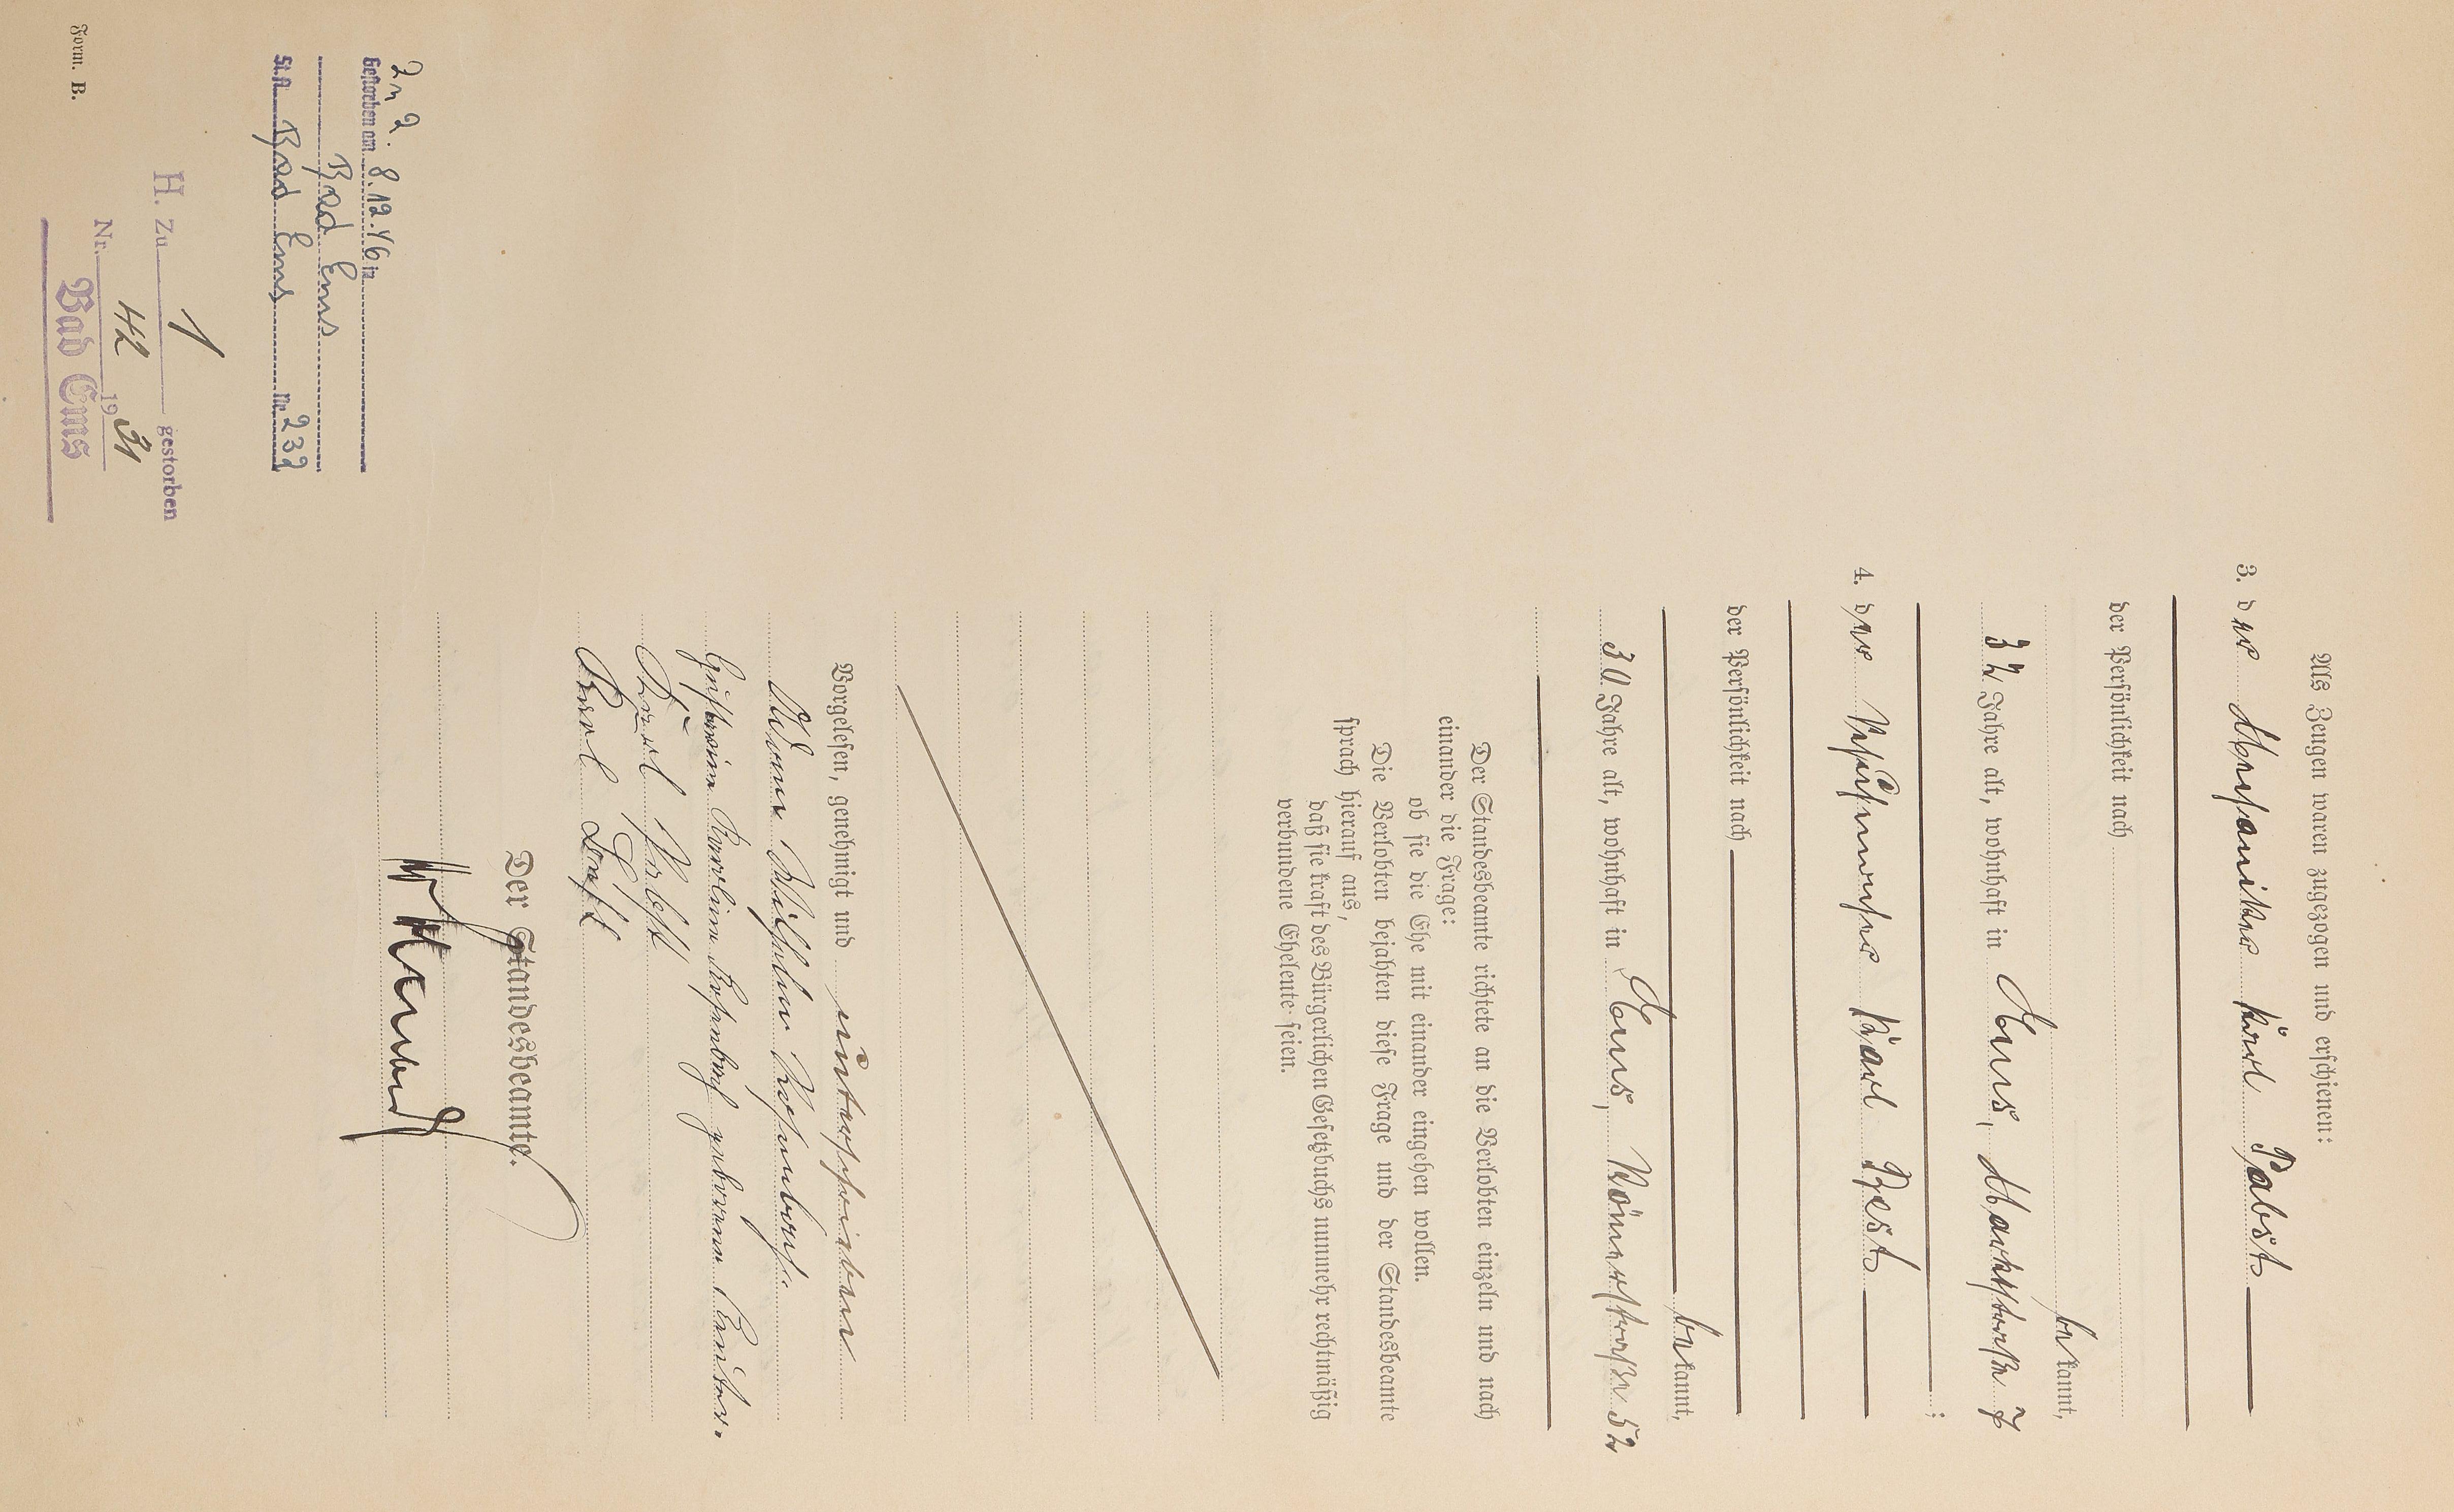 Als Zeugen waren zugezogen und erschienen:
3. der Mechaniker Karl Pabst
der Persönlichkeit nach
be kannt,
32 Jahre alt, wohnhaft in Ems, Marktstraße 7
;
4. der Schuhmacher Karl
der Persönlichkeit nach
be kannt,
30 Jahre alt, wohnhaft in Ems, Römerstraße 52
Der Standesbeamte richtete an die Verlobten einzeln und nach
einander die Frage:
ob sie die Ehe mit einander eingehen wollen.
Die Verlobten bejahten diese Frage und der Standesbeamte
sprach hierauf aus,
daß sie kraft des Bürgerlichen Gesetzbuchs nunmehr rechtmäßig
verbundene Eheleute seien.
Vorgelesen, genehmigt und unterschrieben
Wilhelm
Karoline geborene
Karl Pabst
Karl
Der Standesbeamte.
Zu 2.
Gestorben am 8.12.46 in
Bad Ems
St.A. Bad Ems Nr. 232
H. Zu 1 gestorben
Nr. 42 1931
Bad Ems
Form. B.